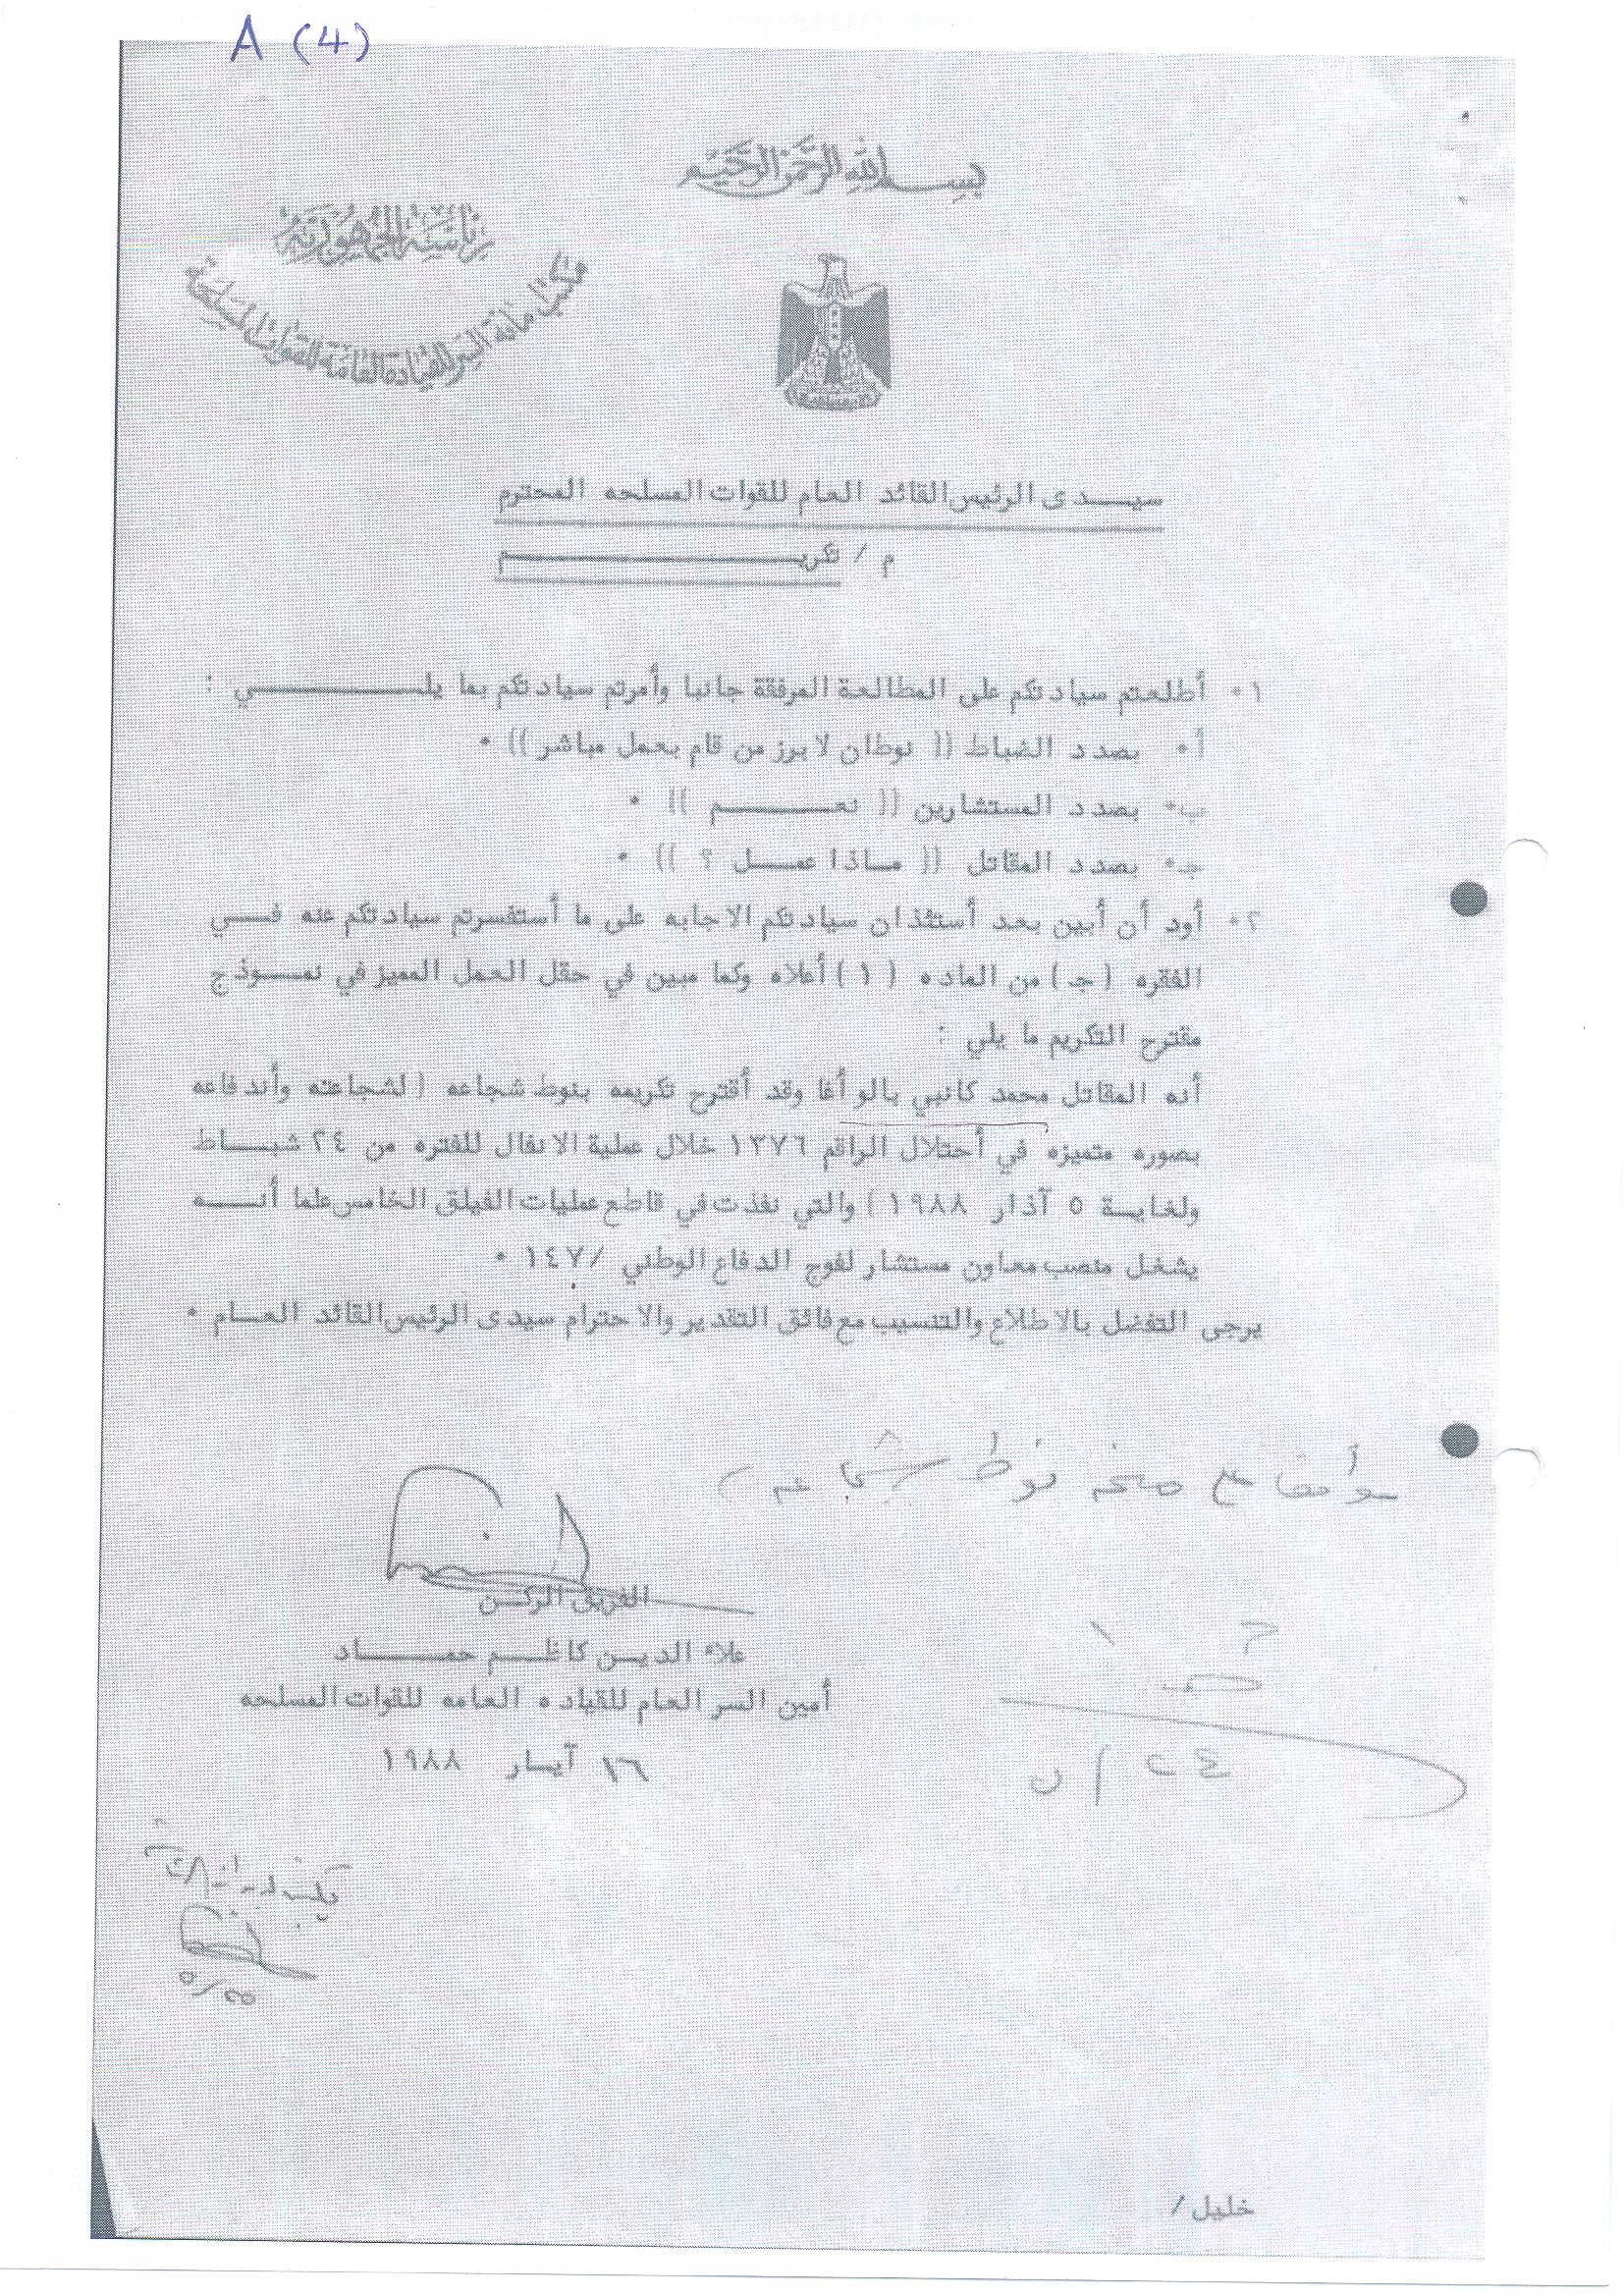 A (4)
بسم الله الرحمن الرحيم
رئاسة الجمهورية
مكتب أمانة السر للقيادة العامة للقوات المسلحة
سيـــدى الرئيس القائد العام للقوات المسلحه المحترم
م / تكريـــــــــم
١٠ أطلعتم سيادتكم على المطالعة المرفقة جانبا وأمرتم سيادتكم بما يلـــــــــي :
أ٠ بصدد الضباط (( نوطان لابرز من قام بعمل مباشر )) ٠
ب٠ بصدد المستشارين (( نعـــــــم )) ٠
جـ٠ بصدد المقاتل (( مــاذا عمــــل ؟ )) ٠
٢٠ أود أن أبين بعد أستئذان سيادتكم الاجابه على ما أستفسرتم سيادتكم عنه فـــي
الفقره (جـ) من الماده (١) أعلاه وكما مبين في حقل العمل المميز في نمـــوذج
مقترح التكريم ما يلي :
أنه المقاتل محمد كانبي بالو أغا وقد أقترح تكريمه بنوط شجاعه (لشجاعته وأندفاعه
بصوره متميزه في أحتلال الراقم ١٣٧٦ خلال عملية الانفال للفتره من ٢٤ شبـــاط
ولغايـــة ٥ آذار ١٩٨٨) والتي نفذت في قاطع عمليات الفيلق الخامس علما أنـــه
يشغل منصب معاون مستشار لفوج الدفاع الوطني /١٤٧ ٠
يرجى التفضل بالاطلاع والتنسيب مع فائق التقدير والاحترام سيدى الرئيس القائد العــام ٠
نوط شجاعه
الفريق الركـــن
علاء الديـــن كاظـــم حمـــــاد
أمين السر العام للقياده العامه للقوات المسلحه
١٦ آيـــار ١٩٨٨
خليل /